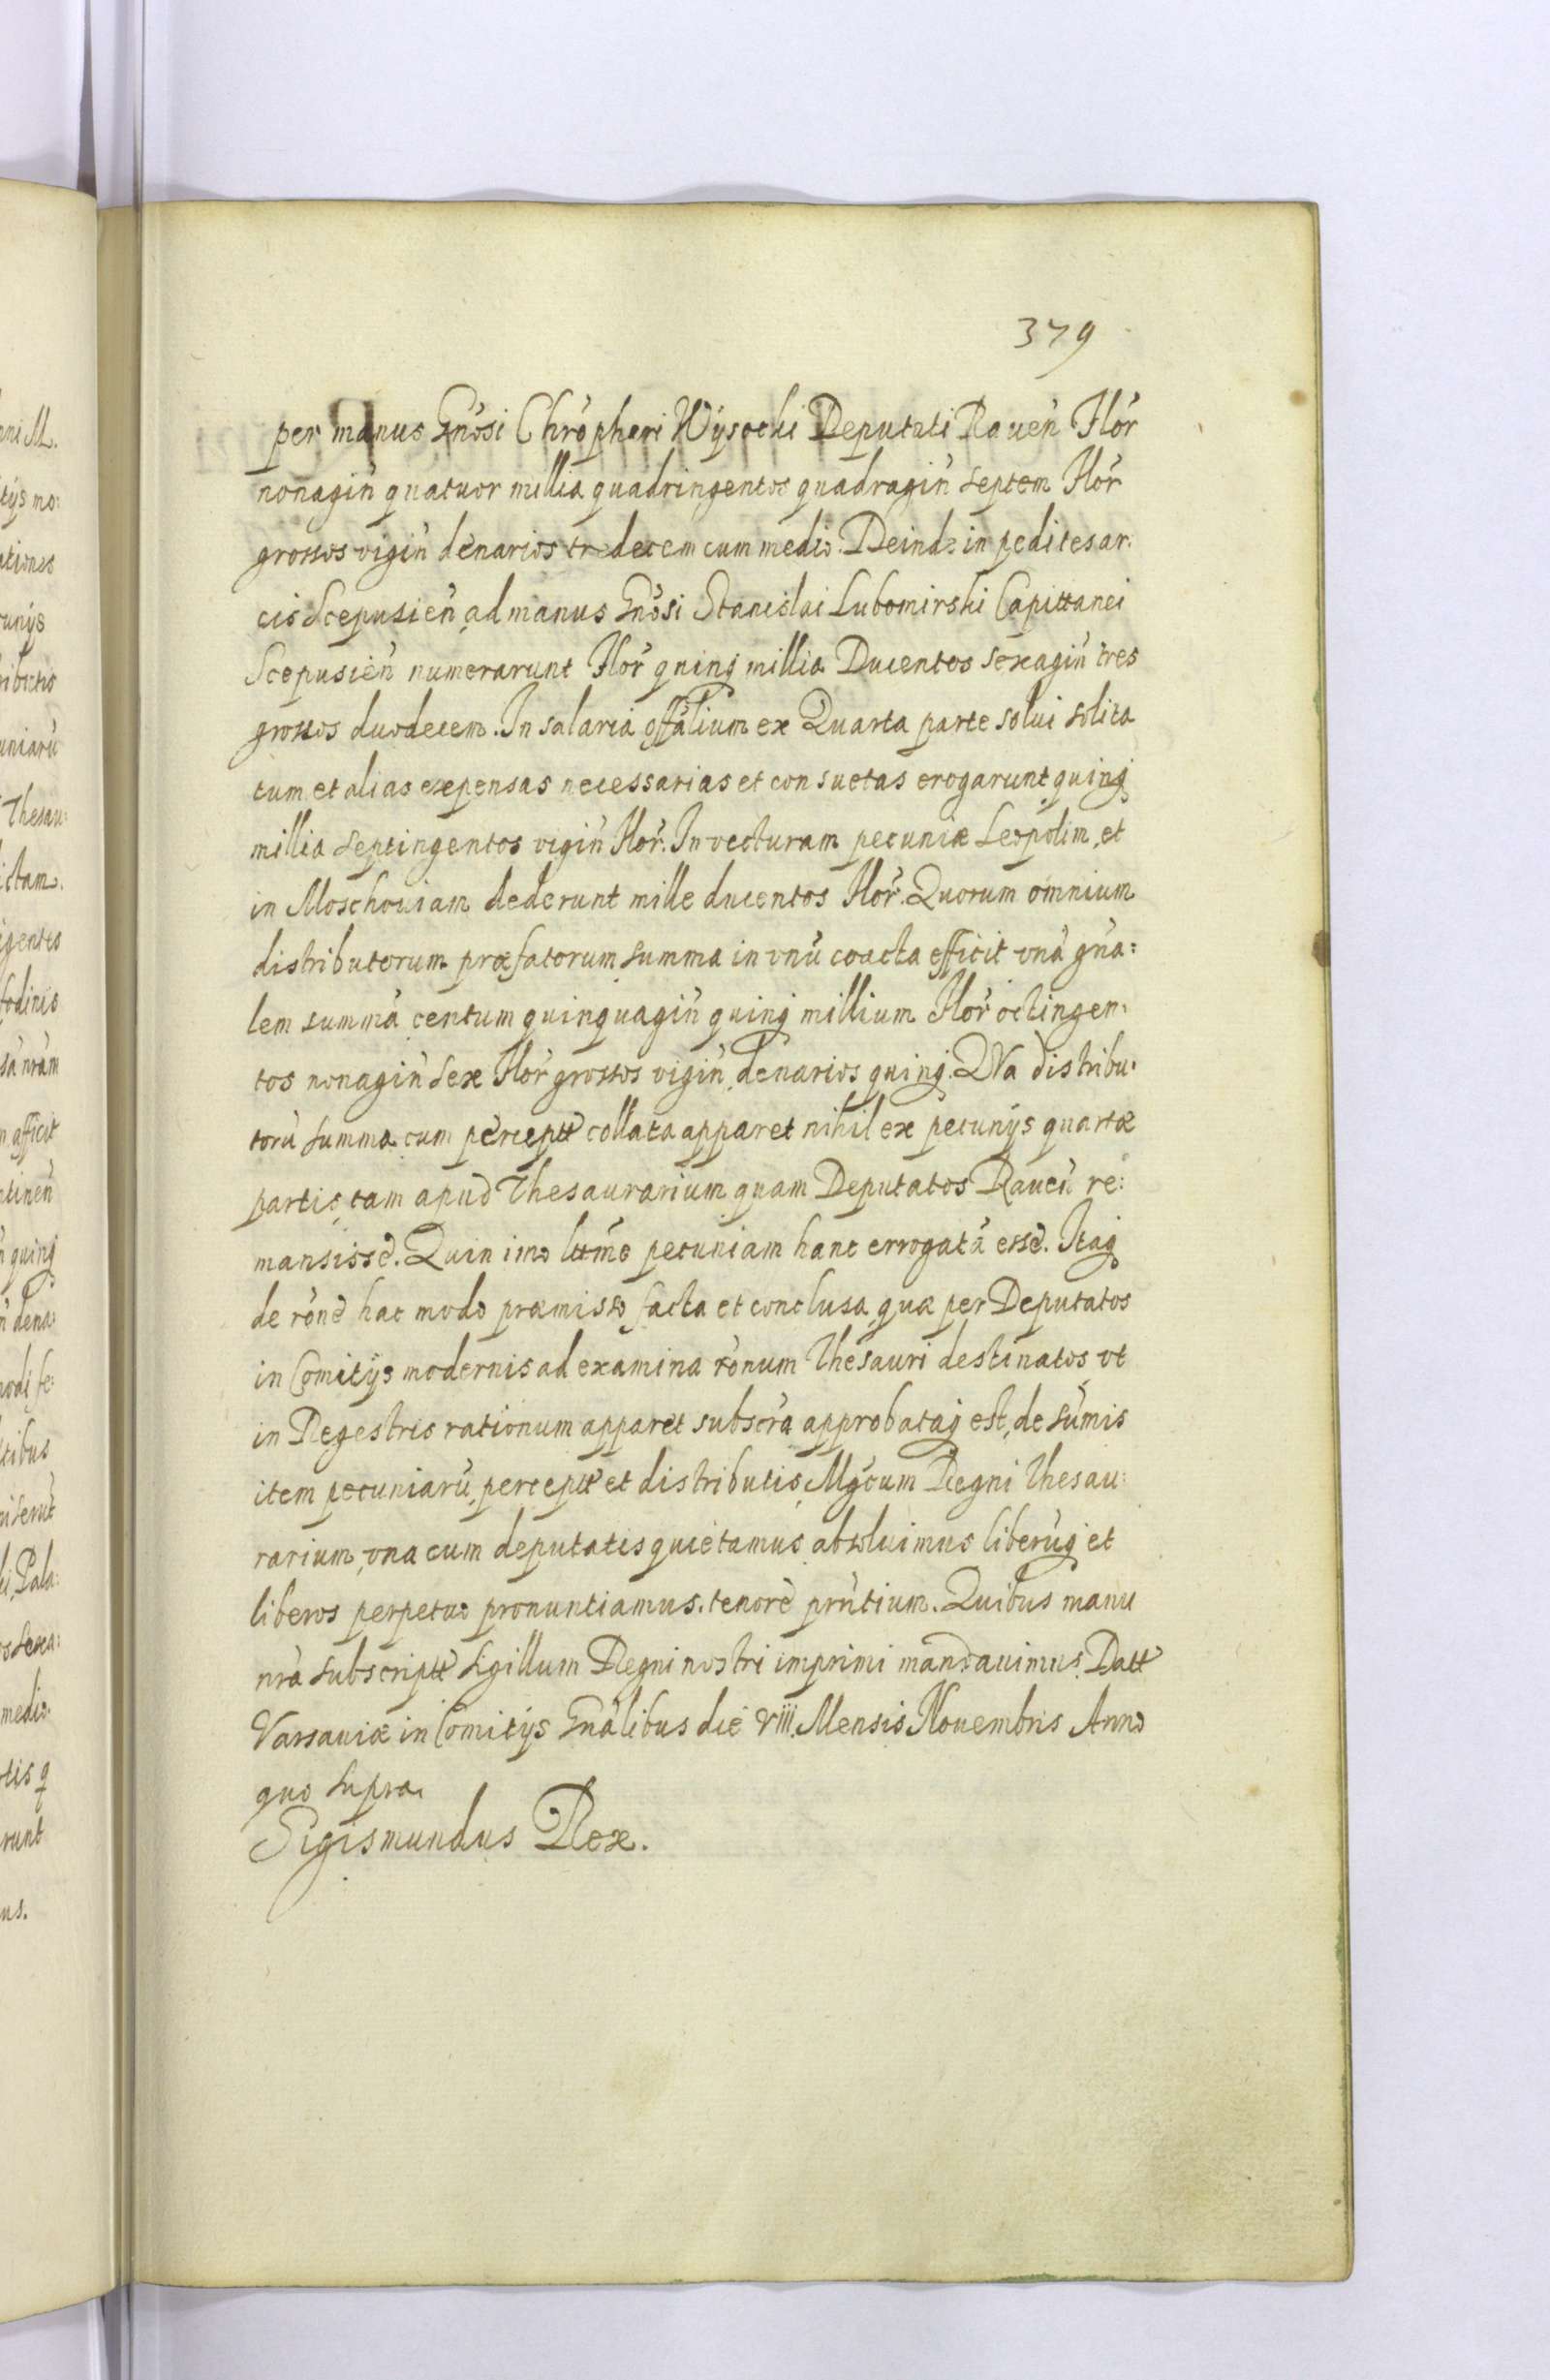 379
per manus Gnosi Chrophori Wysocki Deputati Raueñ Flor̃
nonagiñ quatuor millia quadringentos quadragiñ septem Flor̃
grossos vigiñ denarios tredecem cum medio. Deinde in pedites ar:
cis Scepusieñ, ad manus Gnosi Stanislai Lubomirski Capittanei
Scepusieñ numerarunt Flor̃ quinq millia Ducentos sexagiñ tres
grossos duodecem. In salaria offalium ex Quarta parte solui solita
tum et alias expensas necessarias et consuetas erogarunt quinq
millia septingentos vigiñ Flor̃. In vecturam pecuniæ Leopolim, et
in Moschouiam dederunt mille ducentos Flor̃. Quorum omnium
distributorum præfatorum summa in vnũ coacta efficit vnã gña:
lem summã centum quinquagiñ quinq millium Flor̃ octingen:
tos nonagiñ sex Flor̃ grossos vigiñ, denarios quinq. Qua distribu:
torũ summa cum perceptt collata apparet nihil ex pecunijs quartæ
partis, tam apud Thesaurarium quam Deputatos Raueñ re:
mansisse. Quin imo lttme pecuniam hanc errogatã esse. Itaq
de rõne hac modo præmisso facta et conclusa, quæ per Deputatos
in Comitijs modernis ad examina rõnum Thesauri destinatos, vt
in Regestris rationum apparet subscr̃a approbataq est, de sũmis
item pecuniarũ perceptt et distributis, Mgcum Regni Thesau:
rarium, vna cum deputatis quietamus, absoluimus liberũq et
liberos perpetuo pronuntiamus. tenore prñtium. Quibus manu
nr̃a subscriptt sigillum Regni nostri imprimi mandauimus. Datt
Varsauiæ in Comitijs Gñalibus die VIII. Mensis Nouembris Anno
quo supra.
Sigismundus Rex.